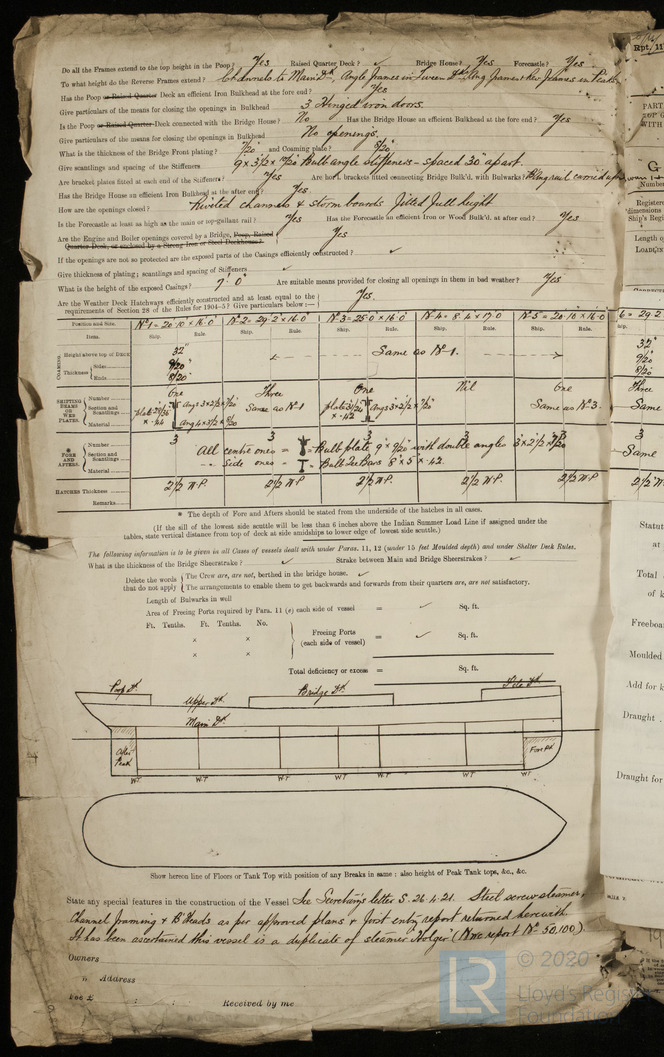 Do all the Frames extend to the top height in the Poop? Yes Raised Quarter Deck? ✓ Bridge House? Yes Forecastle? Yes
To what height do the Reverse Frames extend? Channels to Main Dk, Angle frames in Tween Dk
Has the Poop or Raised Quarter Deck an efficient Iron Bulkhead at the fore end? Yes
Give particulars of the means for closing the openings in Bulkhead 3 Hinged iron doors.
Is the Poop or Raised Quarter Deck connected with the Bridge House? No Has the Bridge House an efficient Bulkhead at the fore end? Yes
Give particulars of the means for closing the openings in Bulkhead No openings.
What is the thickness of the Bridge Front plating? 7/20 and Coaming plate? 8/20
Give scantlings and spacing of the Stiffeners 9 x 3½ x 9/20 Bulb angle stiffeners - spaced 30" apart.
Are bracket plates fitted at each end of the Stiffeners? Yes Are horl. brackets fitted connecting Bridge Bulk'd. with Bulwarks?
Has the Bridge House an efficient Iron Bulkhead at the after end? Yes.
How are the openings closed? Riveted channels & storm boards fitted full height
Is the Forecastle at least as high as the main or top-gallant rail? Yes Has the Forecastle an efficient Iron or Wood Bulk'd. at after end? Yes
Are the Engine and Boiler openings covered by a Bridge, Poop, Raised Yes
Quarter Deck, or enclosed by a Strong Iron or Steel Deckhouse?
If the openings are not so protected are the exposed parts of the Casings efficiently constructed? ✓
Give thickness of plating; scantlings and spacing of Stiffeners ✓
What is the height of the exposed Casings? 7' 0" Are suitable means provided for closing all openings in them in bad weather? Yes
Are the Weather Deck Hatchways efficiently constructed and at least equal to the Yes.
requirements of Section 28 of the Rules for 1904-5? Give particulars below:—
Position and Size. Nº 1 = 20·10 x 16·0 Nº 2 = 29·2 x 16·0 Nº 3 = 25·0 x 16·0 Nº 4 = 8·4 x 17·0 Nº 5 = 20·10 x 16·0 6 = 29·2
Items. Ship. Rule. Ship. Rule. Ship. Rule. Ship. Rule. Ship. Rule.
COAMING Height above top of DECK 32" Same as Nº 1. 32"
Thickness Sides 9/20" 9/20"
Ends 8/20" 8/20
SHIFTING BEAMS OR WEB PLATES. Number One Three One Nil One Three
Section and Scantlings Angs 3 x 2½ x 7/20 Same as Nº 1 Angs 3 x 2½ x 7/20 Same as Nº 3. Same
Material
FORE AND AFTERS. Number 3 3 3 3 3 3
Section and Scantlings All centre ones = Bulb plate 9" x 9/20 with double angles 3 x 2½ x 7/20 Same
Material " Side ones = Bulb Tee Bars 8 x 5 x ·42.
HATCHES Thickness 2½ W.P. 2½ W.P. 2½ W.P. 2½ W.P. 2½ W.P. 2½
Remarks
* The depth of Fore and Afters should be stated from the underside of the hatches in all cases.
(If the sill of the lowest side scuttle will be less than 6 inches above the Indian Summer Load Line if assigned under the
tables, state vertical distance from top of deck at side amidships to lower edge of lowest side scuttle.)
The following information is to be given in all Cases of vessels dealt with under Paras. 11, 12 (under 15 feet Moulded depth) and under Shelter Deck Rules.
What is the thickness of the Bridge Sheerstrake? ✓ Strake between Main and Bridge Sheerstrakes? ✓
Delete the words The Crew are, are not, berthed in the bridge house. ✓
that do not apply The arrangements to enable them to get backwards and forwards from their quarters are, are not satisfactory.
Length of Bulwarks in well
Area of Freeing Ports required by Para. 11 (e) each side of vessel = ✓ Sq. ft.
Ft. Tenths. Ft. Tenths. No.
× × Freeing Ports = ✓ Sq. ft.
× × (each side of vessel)
Total deficiency or excess = Sq. ft.
Poop Dk Upper Dk Bridge Dk
Main Dk
After Peak Fore Pk
W.T W.T W.T W.T W.T W.T W.T
Show hereon line of Floors or Tank Top with position of any Breaks in same; also height of Peak Tank tops, &c., &c.
State any special features in the construction of the Vessel See Secretary's letter S. 26·4·21. Steel screw steamer,
Channel framing & B'Heads as per approved plans & first entry report returned herewith.
It has been ascertained this vessel is a duplicate of steamer "Holger" (Nwc report Nº 50,100).
Owners
" Address
Fee £ : : Received by me
Rpt. 11
PART
WITH
G
Number
Registere
dimensions
Ship's Regi
Length o
LOADLIN
Statut
at
Total
of k
Freeboar
Moulded
Add for k
Draught
Draught for
© 2020
LR
Lloyd's Regis
Foundation